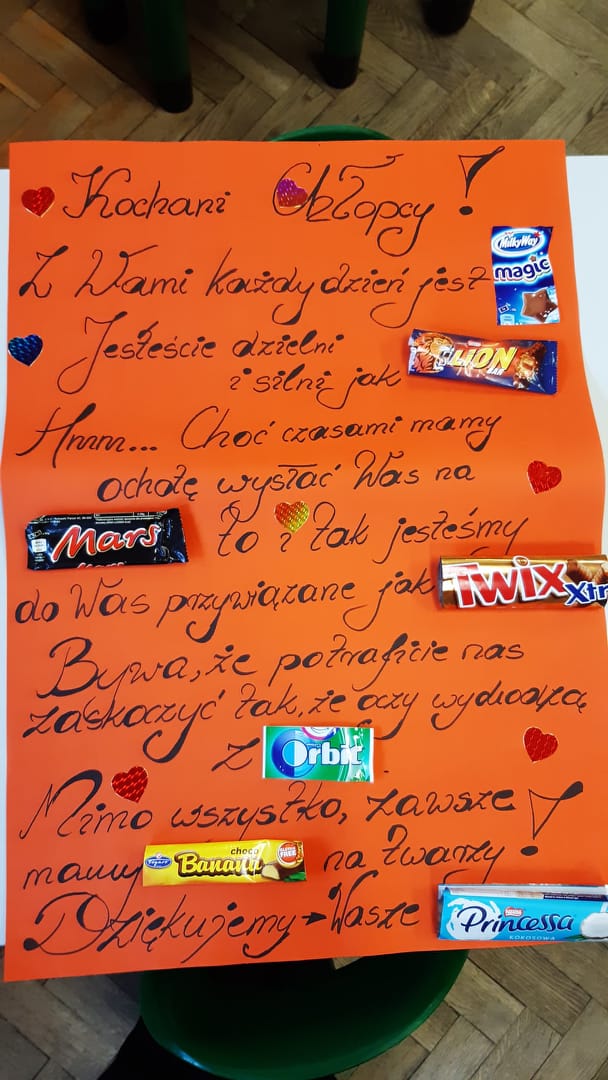 Kochani Chłopcy!
Z Wami każdy dzień jest MilkyWay magic
Jesteście dzielni
i silni jak LION BAR
Hmm... Choć czasami mamy
ochotę wysłać Was na
Mars to i tak jesteśmy
do Was przywiązane jak Twix Xtr
Bywa, że potraficie nas
zaskoczyć tak, że oczy wychodzą
z Orbit
Mimo wszystko, zawsze
mamy choco Banana GLUTEN FREE na twarzy!
Dziękujemy → Wasze Nestlé Princessa KOKOSOWA